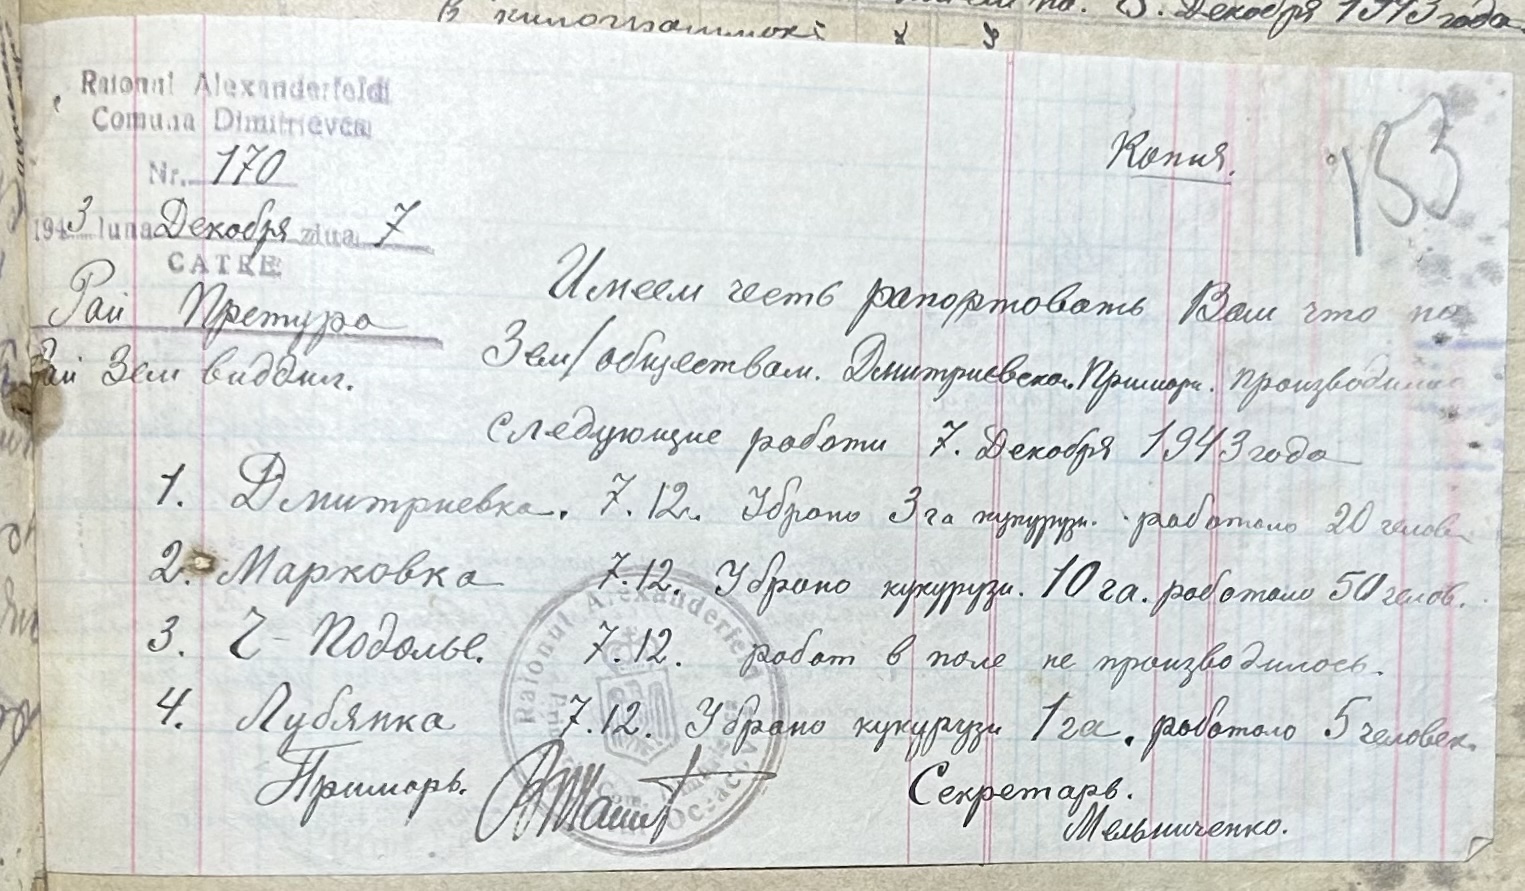 Декабря 1943 года.
В килограммах
Raionul Alexanderfeld
Comuna Dimitrievca
Nr. 170
1943 luna Декабря ziua 7
CATRE
Рай Претура
Рай Зем виддил.
Копия.
153
Имеем честь рапортовать Вам что по
Зем/обществам. Дмитриевская. Примари. производились
следующие работи 7. Декабря 1943 года
1. Дмитриевка. 7.12. Убрано 3 га кукурузи. работало 20 челов.
2. Марковка 7.12. Убрано кукурузи. 10 га. работало 50 челов.
3. Ч- Подолье. 7.12. работ в поле не производилось.
4. Лубянка 7.12. Убрано кукурузи 1 га. работало 5 человек.
Raionul Alexanderfeld
Com.
Oceacov
Примарь.
Секретарь.
Мельниченко.